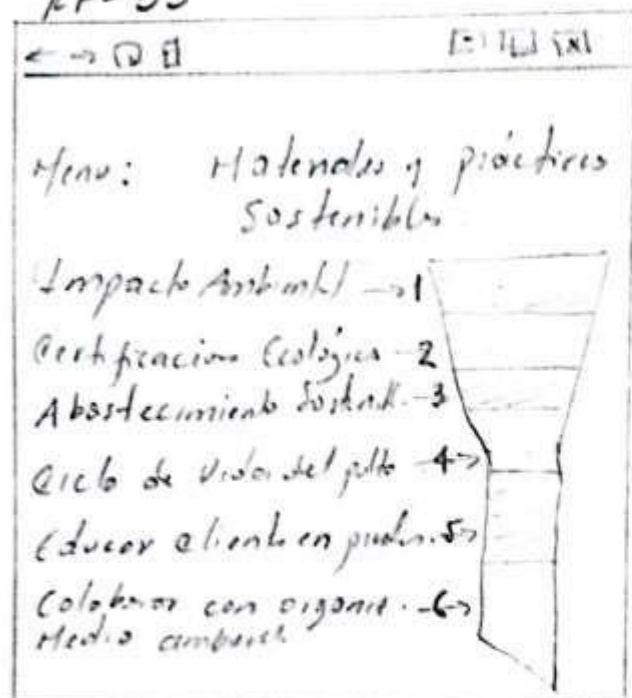 Menu: Materiales y prácticas
Sostenibles
Impacto Ambiental → 1
Certificación Ecológica - 2
Abastecimiento Sostenible - 3
Ciclo de Vida del pdto → 4
Educar cliente en 5
Colaborar con organiz. - 6
Medio ambiente